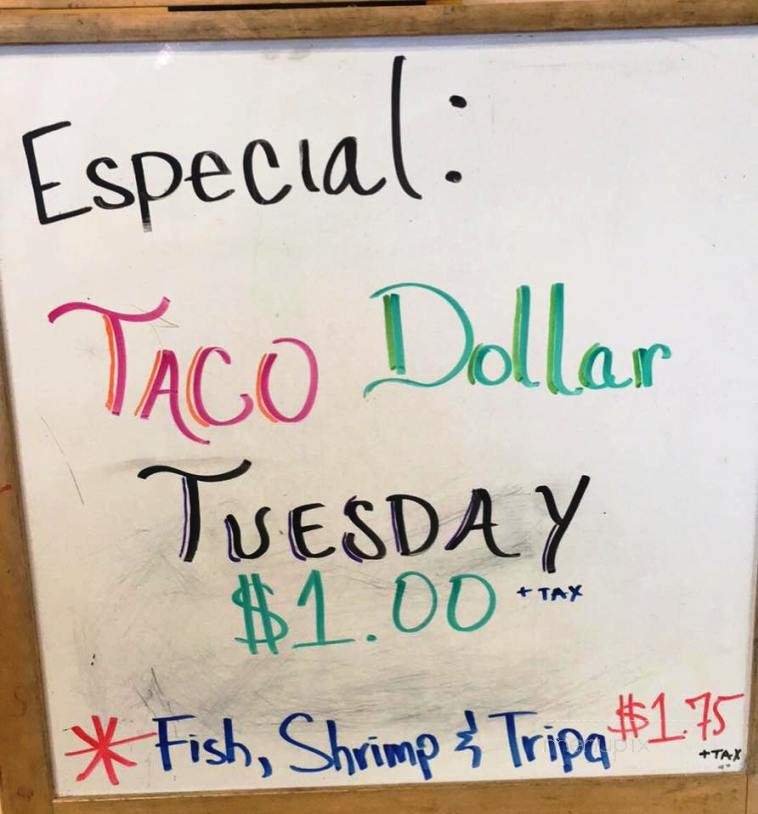 Especial:
TACO Dollar
TUESDAY
$1.00 + TAX
* Fish, Shrimp & Tripa $1.75
+ TAX
menupix